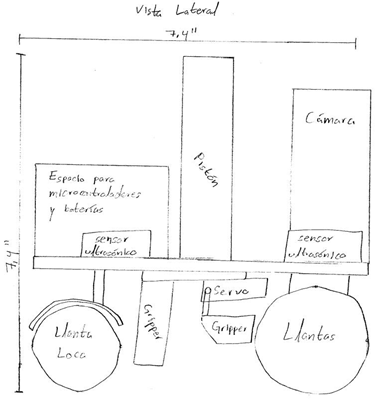 Vista Lateral
7,4"
Cámara
Pistón
Espacio para
microcontroladores
y baterías
sensor
ultrasónico
sensor
ultrasónico
7,4"
Servo
Gripper
Gripper
Llanta
Loca
Llantas